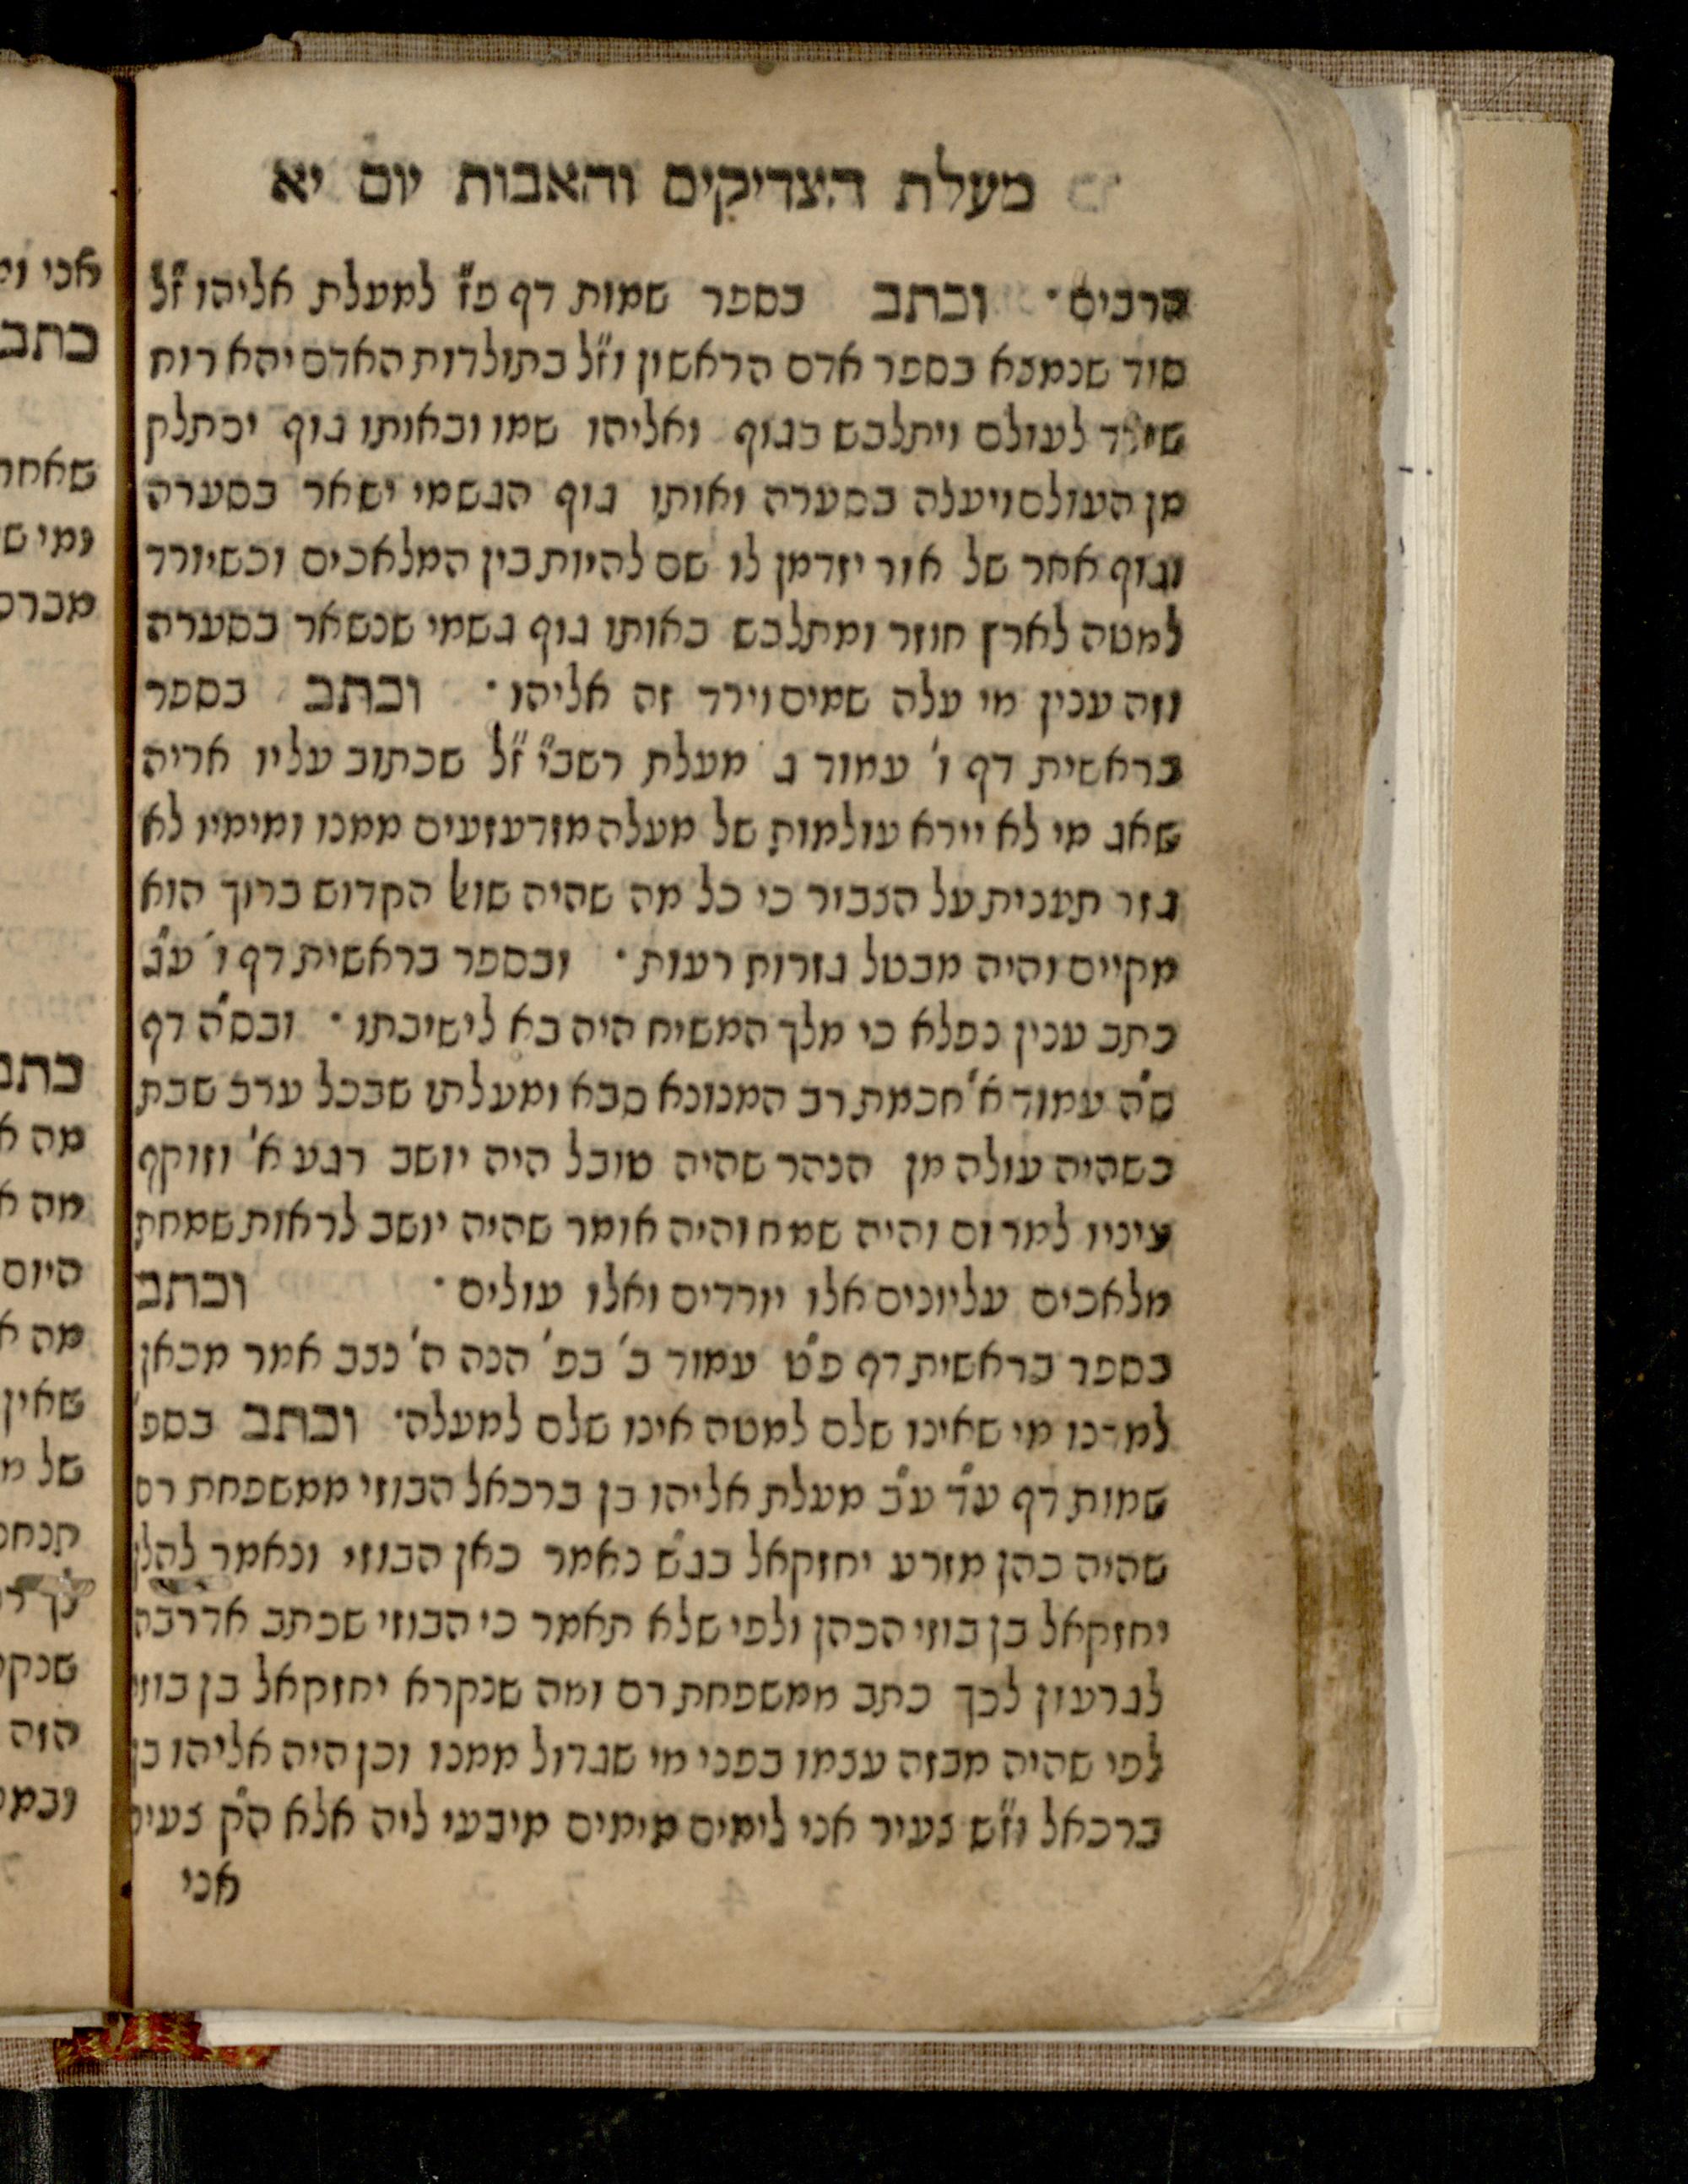 מעלת הצדיקים והאבות יום יא
הרבים· וכתב בספר שמות דף פ״ז למעלת אליהו ז״ל
סוד שנמצא בספר אדם הראשון וז״ל בתולדות האדם יהא רוח
שירד לעולם ויתלבש בגוף ואליהו שמו ובאותו גוף יסתלק
מן העולם ויעלה בסערה ואותו גוף הגשמי ישאר בסערה
וגוף אחר של אור יזדמן לו שם להיות בין המלאכים וכשיורד
למטה לארץ חוזר ומתלבש באותו גוף גשמי שנשאר בסערה
וזה ענין מי עלה שמים וירד זה אליהו· וכתב בספר
בראשית דף ו׳ עמוד ג מעלת רשב״י ז״ל שכתוב עליו אריה
שאג מי לא יירא עולמות של מעלה מזדעזעים ממנו ומימיו לא
גזר תענית על הצבור כי כל מה שהיה שואל הקדוש ברוך הוא
מקיים והיה מבטל גזרות רעות· ובספר בראשית דף ו׳ ע״ג
כתב ענין נפלא כי מלך המשיח היה בא לישיבתו· ובס״ה דף
ס״ה עמוד א׳ חכמת רב המנונא סבא ומעלתו שבכל ערב שבת
כשהיה עולה מן הנהר שהיה טובל היה יושב רגע א׳ וזוקף
עיניו למרום והיה שמח והיה אומר שהיה יושב לראות שמחת
מלאכים עליונים אלו יורדים ואלו עולים· וכתב
בספר בראשית דף פ״ט עמוד ב׳ בפ׳ הנה ה׳ נצב אמר מכאן
למדנו מי שאינו שלם למטה אינו שלם למעלה· וכתב בספ׳
שמות דף ע״ד ע״ב מעלת אליהו בן ברכאל הבוזי ממשפחת רם
שהיה כהן מזרע יחזקאל בג״ש נאמר כאן הבוזי ונאמר להלן
יחזקאל בן בוזי הכהן ולפי שלא תאמר כי הבוזי שכתב אדרבה
לגרעון לכך כתב ממשפחת רם ומה שנקרא יחזקאל בן בוזי
לפי שהיה מבזה עצמו בפני מי שגדול ממנו וכן היה אליהו בן
ברכאל וז״ש צעיר אני לימים מימים מיבעי ליה אלא ה״ק צעיר
אני